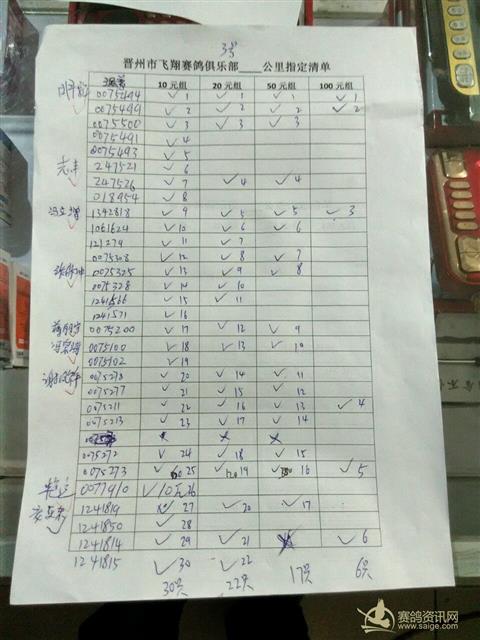 3号
晋州市飞翔赛鸽俱乐部____公里指定清单
10元组 20元组 50元组 100元组
0075494 ✓1 ✓1 ✓1 ✓1
0075499 ✓2 ✓2 ✓2 ✓2
0075500 ✓3 ✓3 ✓3
0075491 ✓4
0075493 ✓5
247521 ✓6
247526 ✓7 ✓4 ✓4
018954 ✓8
1342818 ✓9 ✓5 ✓5 ✓3
1061624 ✓10 ✓6 ✓6
121279 ✓11 ✓7
0075308 ✓12 ✓8 ✓7
0075325 ✓13 ✓9 ✓8
0075328 ✓14 ✓10
1241566 ✓15 ✓11
1241571 ✓16
0075200 ✓17 ✓12 ✓9
0075100 ✓18 ✓13 ✓10
0075102 ✓19
0075278 ✓20 ✓14 ✓11
0075277 ✓21 ✓15 ✓12
0075211 ✓22 ✓16 ✓13 ✓4
0075213 ✓23 ✓17 ✓14
0075272 ✓24 ✓18 ✓15
0075273 25 19 16 ✓5
0077910 ✓10元26
1241819 27 ✓20 ✓17
1241850 ✓28
1241814 ✓29 ✓21 ✓6
1241815 ✓30 ✓22
30只 22只 17只 6只
赛鸽资讯网
www.saige.com